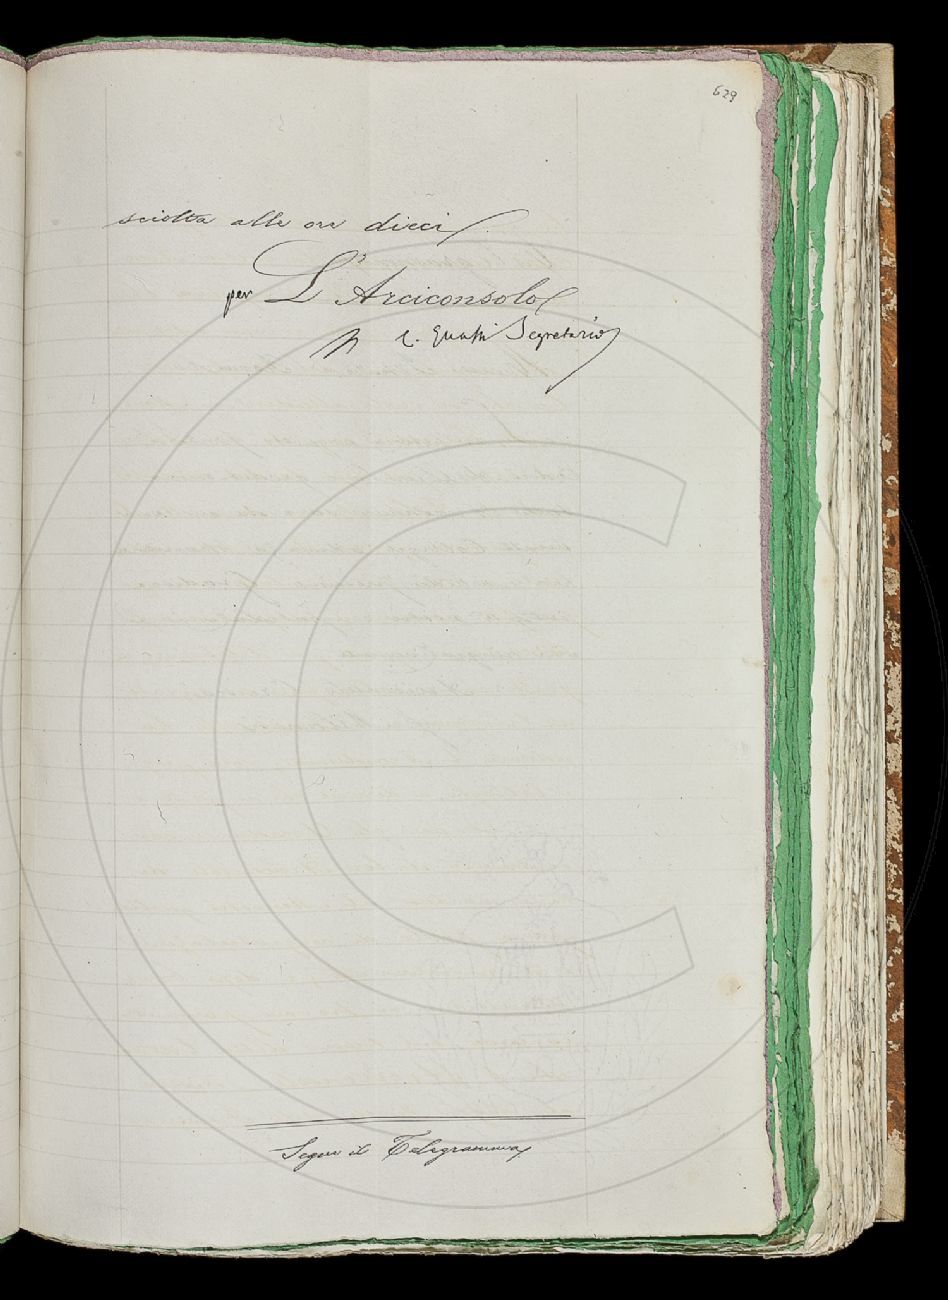 629
sciolta alle ore dieci
per L'Arciconsolo
Segretario
Segue il Telegramma